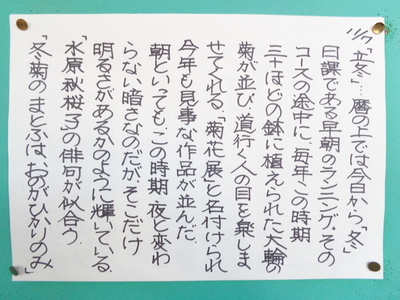 11/7「立冬」…暦の上では今日から「冬」
日課である早朝のランニング。その
コースの途中に、毎年この時期
三十ほどの鉢に植えられた大輪の
菊が並び、道行く人の目を楽しま
せてくれる。「菊花展」と名付けられ
今年も見事な作品が並んだ。
朝といっても、この時期、夜と変わ
らない暗さなのだが、そこだけ
明るさがあるかのように輝いている。
水原秋桜子の俳句が似合う。
「冬菊の まとふは、おのがひかりのみ」